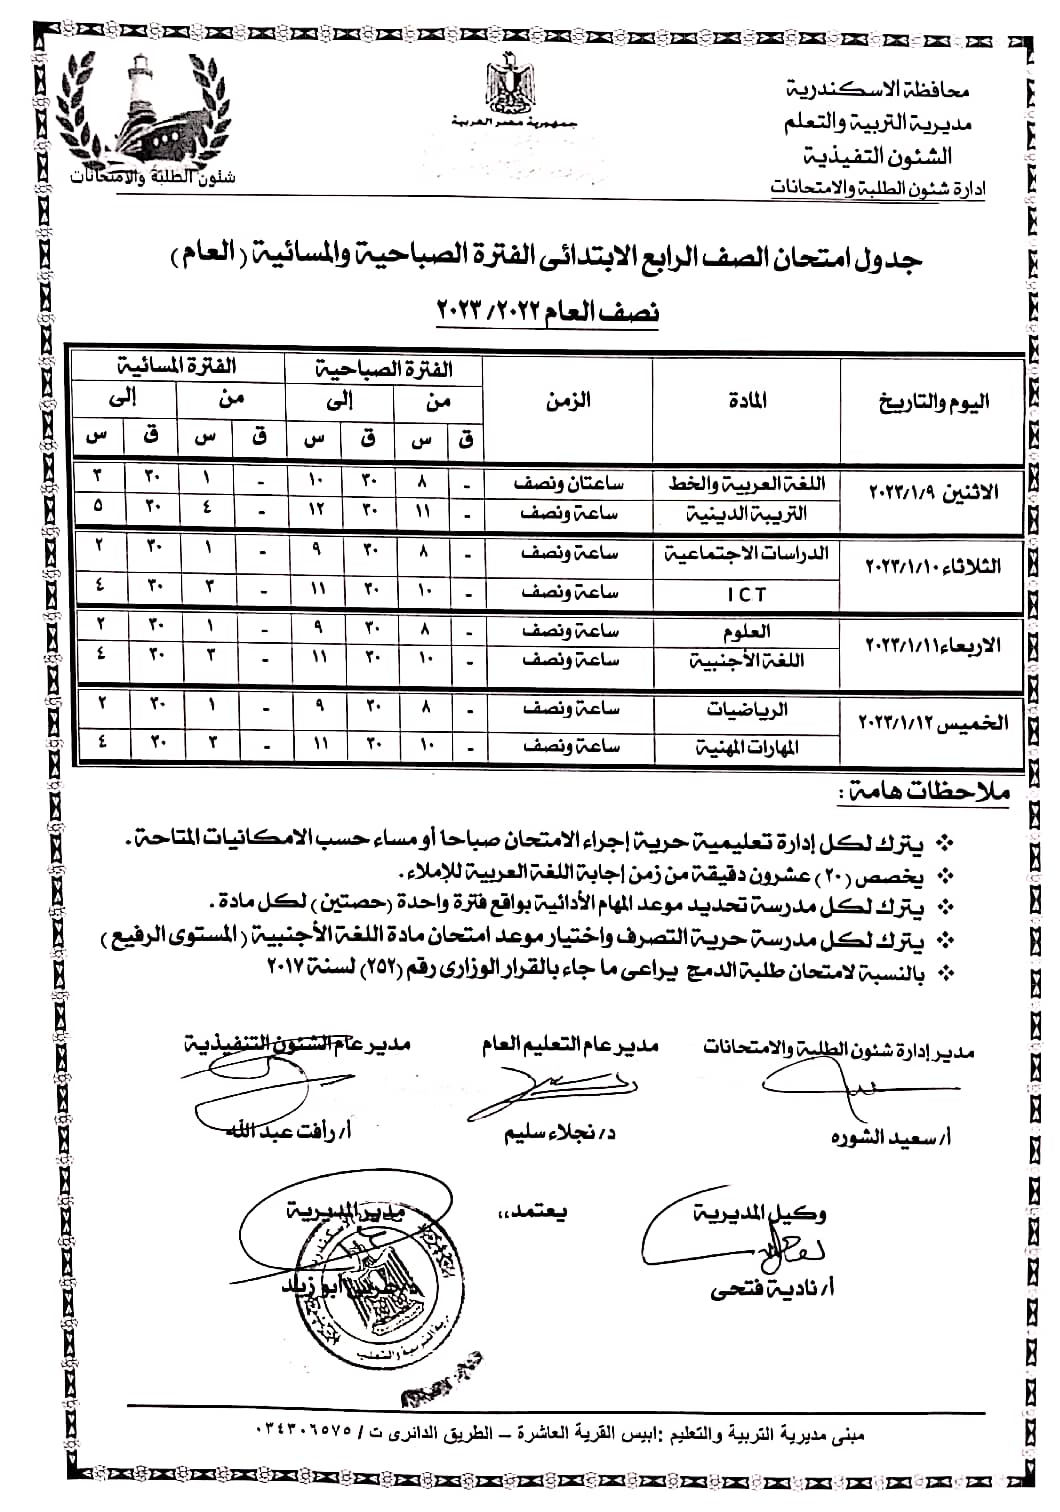 محافظة الاسكندرية
مديرية التربية والتعلم
الشئون التفيذية
إدارة شئون الطلبة والامتحانات
جمهورية مصر العربية
شئون الطلبة والامتحانات
جدول امتحان الصف الرابع الابتدائى الفترة الصباحية والمسائية (العام)
نصف العام ٢٠٢٢/ ٢٠٢٣
اليوم والتاريخ المادة الزمن الفترة الصباحية الفترة المسائية
من إلى من إلى
ق س ق س ق س ق س
الاثنين ٢٠٢٣/١/٩ اللغة العربية والخط ساعتان ونصف - ٨ ٣٠ ١٠ - ١ ٣٠ ٣
التريبة الدينية ساعة ونصف - ١١ ٣٠ ١٢ - ٤ ٣٠ ٥
الثلاثاء ٢٠٢٣/١/١٠ الدراسات الاجتماعية ساعة ونصف - ٨ ٣٠ ٩ - ١ ٣٠ ٢
ICT ساعة ونصف - ١٠ ٣٠ ١١ - ٣ ٣٠ ٤
الاربعاء ٢٠٢٣/١/١١ العلوم ساعة ونصف - ٨ ٣٠ ٩ - ١ ٣٠ ٢
اللغة الأجنبية ساعة ونصف - ١٠ ٣٠ ١١ - ٣ ٣٠ ٤
الخميس ٢٠٢٣/١/١٢ الرياضيات ساعة ونصف - ٨ ٣٠ ٩ - ١ ٣٠ ٢
المهارات المهنية ساعة ونصف - ١٠ ٣٠ ١١ - ٣ ٣٠ ٤
ملاحظات هامة :
❖ يترك لكل إدارة تعليمية حرية إجراء الامتحان صباحا أو مساء حسب الامكانيات المتاحة .
❖ يخصص (٢٠) عشرون دقيقة من زمن إجابة اللغة العربية للإملاء .
❖ يترك لكل مدرسة تحديد موعد المهام الأدائية بواقع فترة واحدة (حصتين) لكل مادة .
❖ يترك لكل مدرسة حرية التصرف واختيار موعد امتحان مادة اللغة الأجنبية (المستوى الرفيع)
❖ بالنسبة لامتحان طلبة الدمج يراعى ما جاء بالقرار الوزارى رقم (٢٥٢) لسنة ٢٠١٧
مدير إدارة شئون الطلبة والامتحانات مدير عام التعليم العام مدير عام الشئون التنفيذية
أ/ سعيد الشوره د/ نجلاء سليم أ/ رأفت عبد الله
وكيل المديرية يعتمد،، مدير المديرية
أ/ نادية فتحى أبو زيد
مبنى مديرية التربية والتعليم :ابيس القرية العاشرة – الطريق الدائرى ت / ٠٣٤٣٠٦٥٧٥